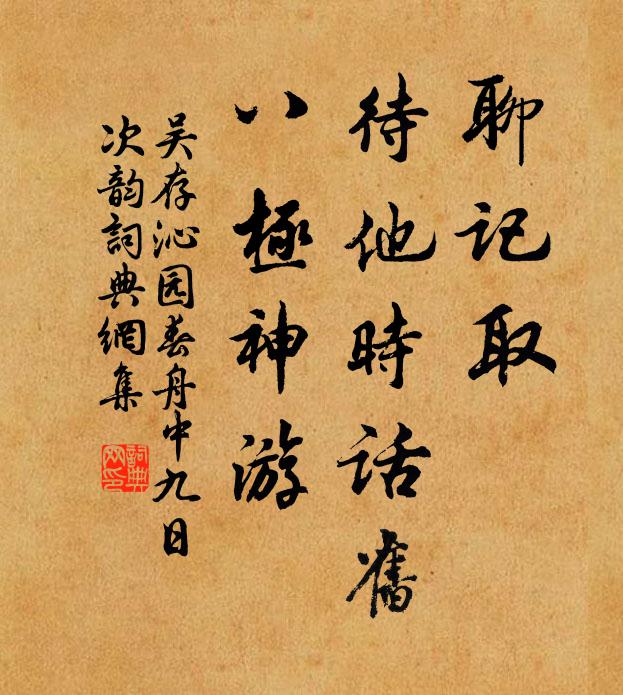 聊记取
待他時话舊
八極神游
吴存沁园春舟中九日
次韵詞典網集
詞典網印